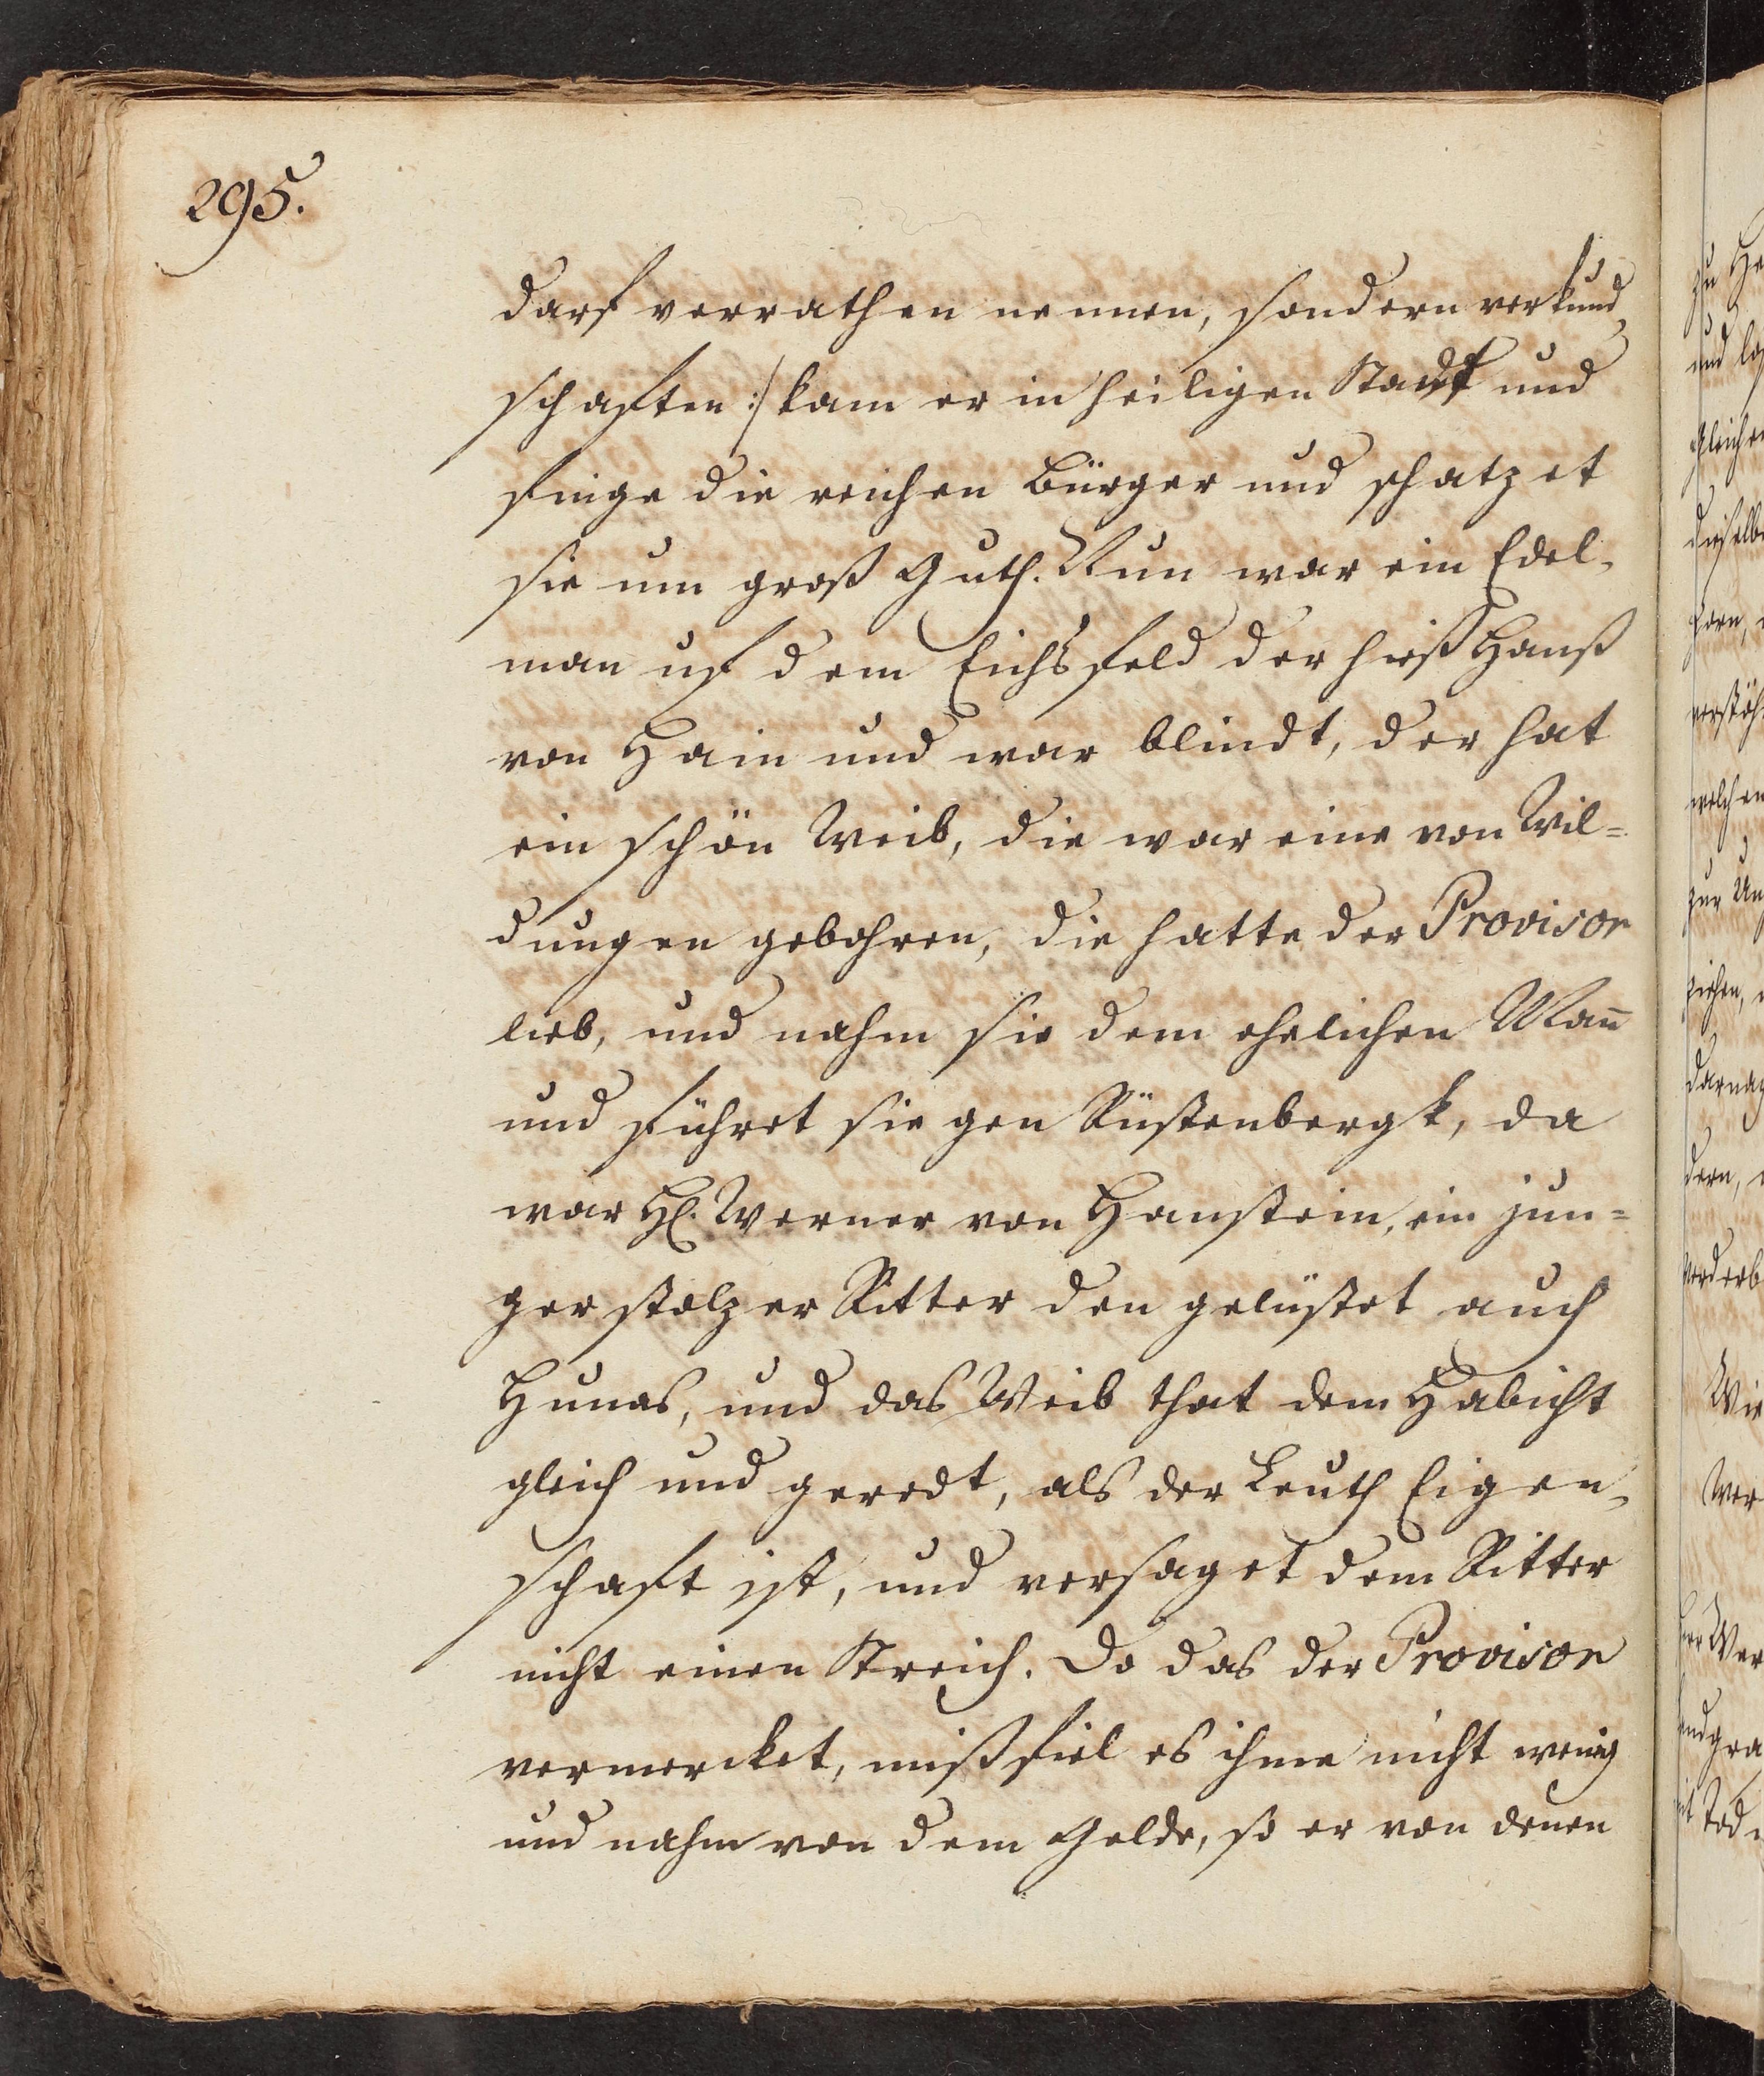 295.
darf verrathen nennen, sondern verkund¬
schaften :/ kam er in heiligen Stadt und
finge die reichen Bürger und schatzet
sie um groß Guth. Nun war ein Edel¬
man uf dem Eichsfeld der hieß Hanß
von Hain und war blindt, der hat
ein schön Weib, die war eine von Wil=
dungen gebohren, die hatte der Provisor
lieb, und nahm sie dem ehelichen Man̄
und führet sie gen Rüstenbergk, da
war H. Werner von Hanstein, ein jun=
ger stolzer Ritter den gelüstet auch
Hunas, und das Weib that dem Habicht
gleich und geredt, als der Leuth Eigen¬
schaft ist, und versaget dem Ritter
nicht einen Streich. Do das der Provisor
vermercket, mißfiel es ihme nicht wenig
und nahm von dem Gelde, so er von denen